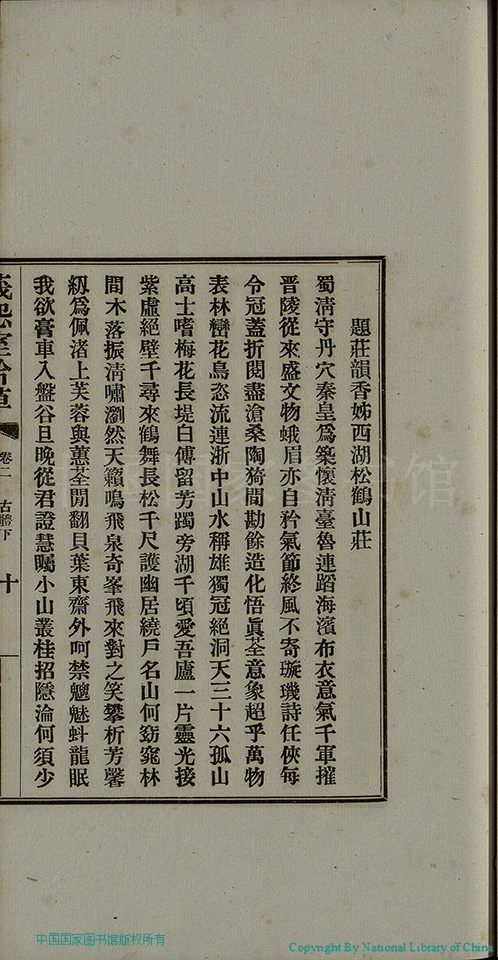 題莊韻香姊西湖松鶴山莊
蜀清守丹穴秦皇爲築懷清臺魯連蹈海濱布衣意氣千軍摧
晉陵從來盛文物蛾眉亦自矜氣節終風不寄璇璣詩任俠每
令冠蓋折閱盡滄桑陶猗間勘餘造化悟眞荃意象超乎萬物
表林巒花鳥恣流連浙中山水稱雄獨冠絕洞天三十六孤山
高士嗜梅花長堤白傅留芳躅旁湖千頃愛吾廬一片靈光接
紫虛絕壁千尋來鶴舞長松千尺護幽居繞戶名山何窈窕林
間木落振清嘯瀏然天籟鳴飛泉奇峯飛來對之笑攀析芳馨
紉爲佩渚上芙蓉與蕙荃閒翻貝葉東齋外呵禁魑魅蚪龍眠
我欲膏車入盤谷旦晚從君證慧矚小山叢桂招隱淪何須少
卷二 古體下 十
中国国家图书馆版权所有
Copyright By National Library of China